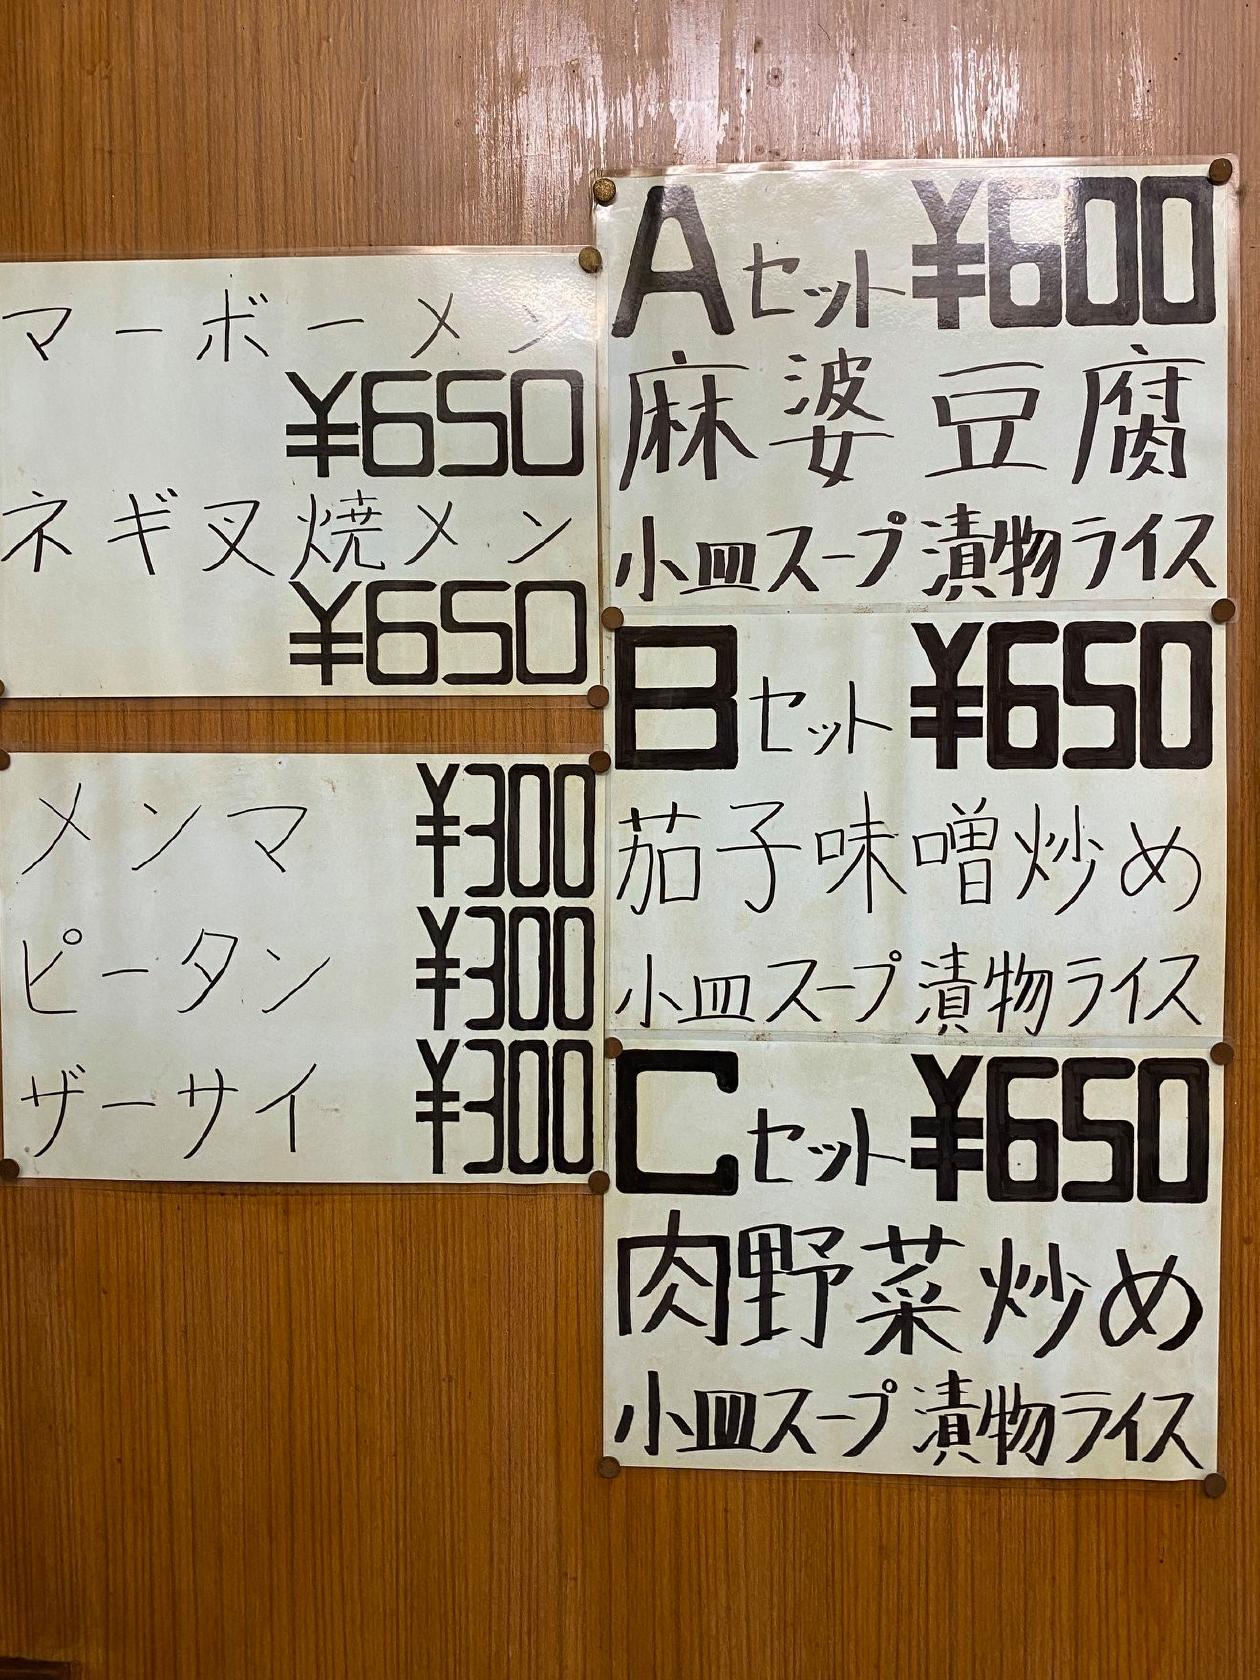 マーボーメン
¥650
ネギ叉焼メン
¥650
メンマ ¥300
ピータン ¥300
ザーサイ ¥300
Aセット¥600
麻婆豆腐
小皿スープ漬物ライス
Bセット¥650
茄子味噌炒め
小皿スープ漬物ライス
Cセット¥650
肉野菜炒め
小皿スープ漬物ライス